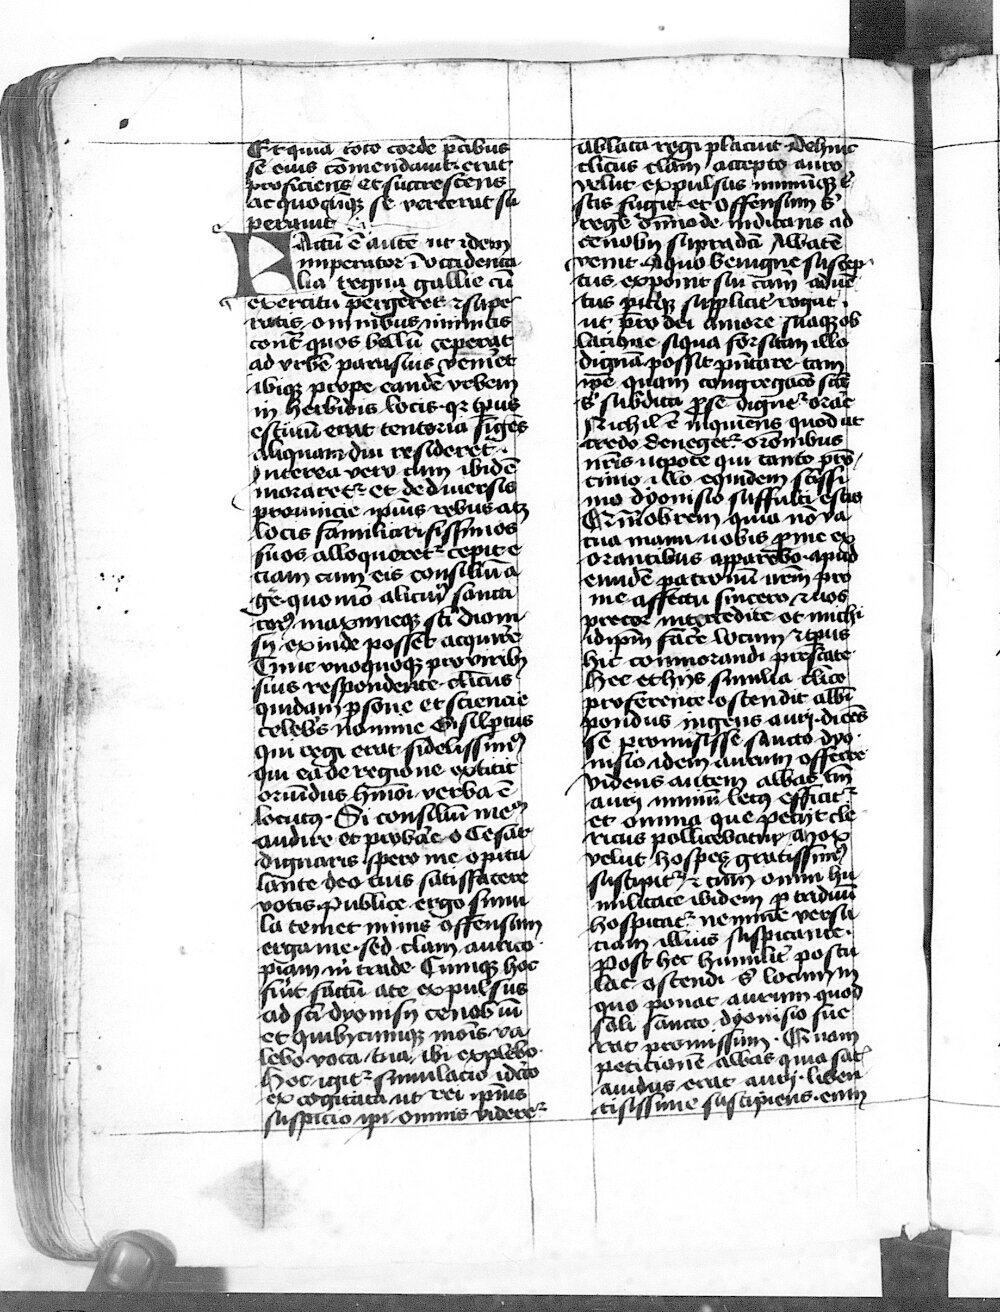 Et quia toto corde p̄cibus
se eius cōmendauit erat
proficiens et succrescens
ac quocūqꝫ se verterat su
perauit
Factū ē autē ut idem
imperator ī occidenta
lia regna gallie cū
exercitu pergeret ⁊ supe
ratis omnibus inimicis
contͣ quos bellū ceperat
ad vrbē parisius veniret
ibiqꝫ prope eandē vrbem
in herbidis locis qꝛ tp̄us
estiuū erat tentoria figēs
aliquamdiu resideret
Interea vero cum ibidē
moraretᷣ et de diuersis
prouincie ipius rebus atqꝫ
locis familiarissimos
suos alloqueretᷣ cepit e
ciam cum eis consiliū a
gͤe quomō alicuiꝰ sancti
corpꝰ maximeqꝫ sc̄i dioni
sij exinde posset acquirͤe
Cuiͥ vnoquoqꝫ pro viribꝫ
suis respondente clēicus
quidam p̱sone et sciencie
celebͥs nomine Gisilp̱tus
qui regi erat fidelissimꝰ
qui eadē regione extitit
oriūdus hmōi verba ē
locutꝰ Si consiliū meū
audire et probaͤe o Cesar
dignaris spero me opitu
lante deo tuis satisfacere
votis Publice ergo simu
la temet nimis offensum
erga me sed clam auri co
piam m̄ trade Cumqꝫ hoc
fuͥit factū a te expulsus
ad sc̄i dyonisij cenobiū
et quibuscumqꝫ modis va
lebo vota tua ibi explebo
Hoc igitᷣ simulacio idcͦo
excogitata ut rei ipius
suspicio ipi omnis videreᷣ
ablata regi placuit Dehinc
clicus clam accepto auro
velut expulsus nimiūqꝫ tͥ
stis fugit et offensum sͥ
regē oīmode iudicans ad
cenobij supradc̄i Abbatē
venit A quo benigne suscep
tus exponit sui cām aduē
tus pitͥqꝫ supplicitͥ rogat
ut pro dei amore suaqꝫ ob
lacione siqua forsitan illo
digna possit p̄ntare tam
ipē quam congregacō sibi
subdita p̱ se digneᷣ orare
Nichil ē inquiens quod ut
credo denegetᷣ orōnibus
nr̄is utpote qui tanto p̄ro
cimo illo equidem sc̄issi
mo dyonisio suffulti estis
Quāobrem quia nō va
cua manu uobis p̱ me ex
orantibus apparebo apud
eundē patronū ur̄m pro
me affectu sincero ⁊ uos
precor intercedite et michi
idipm̄ facͤe locum ⁊ tp̄us
hic commorandi prestate
Hec et hijs similia clico
proferente ostendit abbi
pondus ingens auri dicēs
se promisisse sancto dyo
nisio idem aurum offerre
Videns autem abbas tm̄
auri nimiū letꝰ efficitᷣ
et omnia que petijt cle
ricus pollicebatur ac mox
velut hospes gratissimꝰ
suscipitᷣ ⁊ cum omni hu
militate ibidem p̱ triduū
hospitatᷣ nemine versu
ciam illius suspicante
Post hec humilitͥ postu
lat ostendi sͥ locum in
quo ponat aurum quod
soli sancto dyonisio fue
rat promissum Quam
peticionē abbas quia satͥ
auidus erat auri liben
tissime suscipiens eum